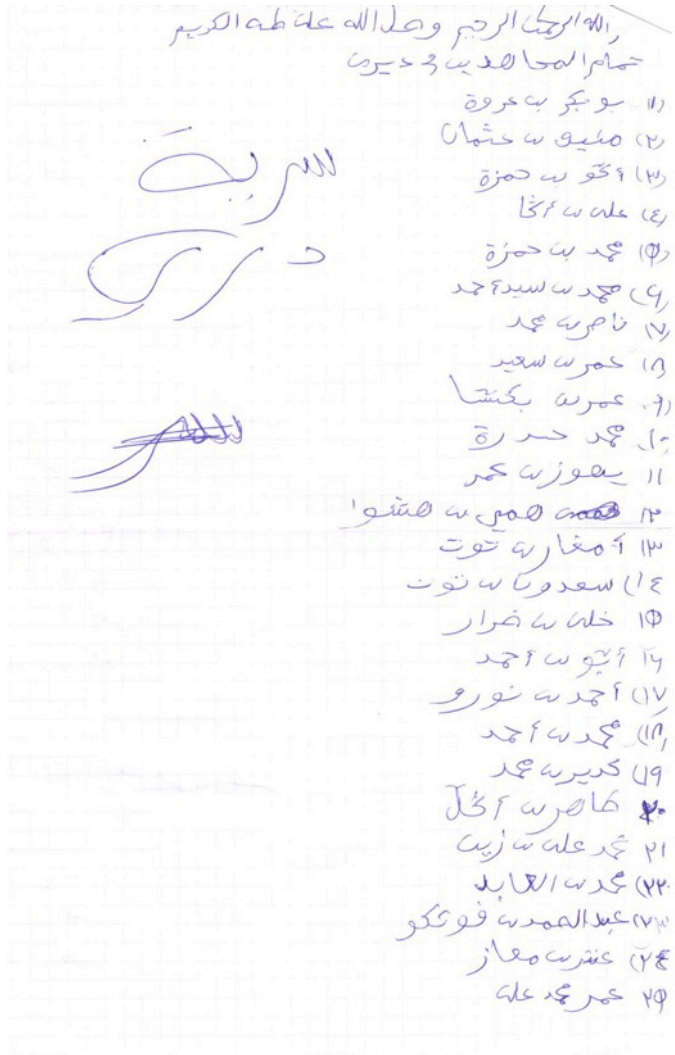 الله الرحمن الرحيم وصل الله على طه الكريم
تمام المجاهدين في ديرى
(١) بوبكر بن عروة
(٢) منيو بن عثمان
(٣) أڭو بن حمزة
(٤) على بن أڭا
(٥) محمد بن حمزة
(٦) محمد بن سيد أحمد
(٧) ناصر بن محمد
(٨) عمر بن سعيد
(٩) عمر بن بكتشا
(١٠) محمد حدرة
١١ يهوز بن عمر
١٢ همي بن هشوا
١٣ أمغار بن توت
١٤) سعدونا بن توت
١٥ خلى بن ضرار
١٦ أيو بن أحمد
١٧) أحمد بن نورو
(١٨) محمد بن أحمد
١٩) كدير بن محمد
٢٠ طاهر بن أڭل
٢١ محمد على بن زين
(٢٢) محمد بن العابد
(٢٣) عبد الصمد بن فوتكو
٢٤) عنتر بن معاز
٢٥ عمر محمد على
سرية
ديرى